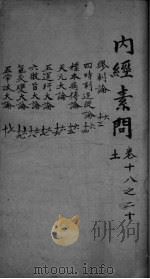 內經素問
卷十八之二十
土
繆刺論
四時刺逆從論
標本病傳論
天元大論
五運行大論
六微旨大論
氣交變大論
五常政大論